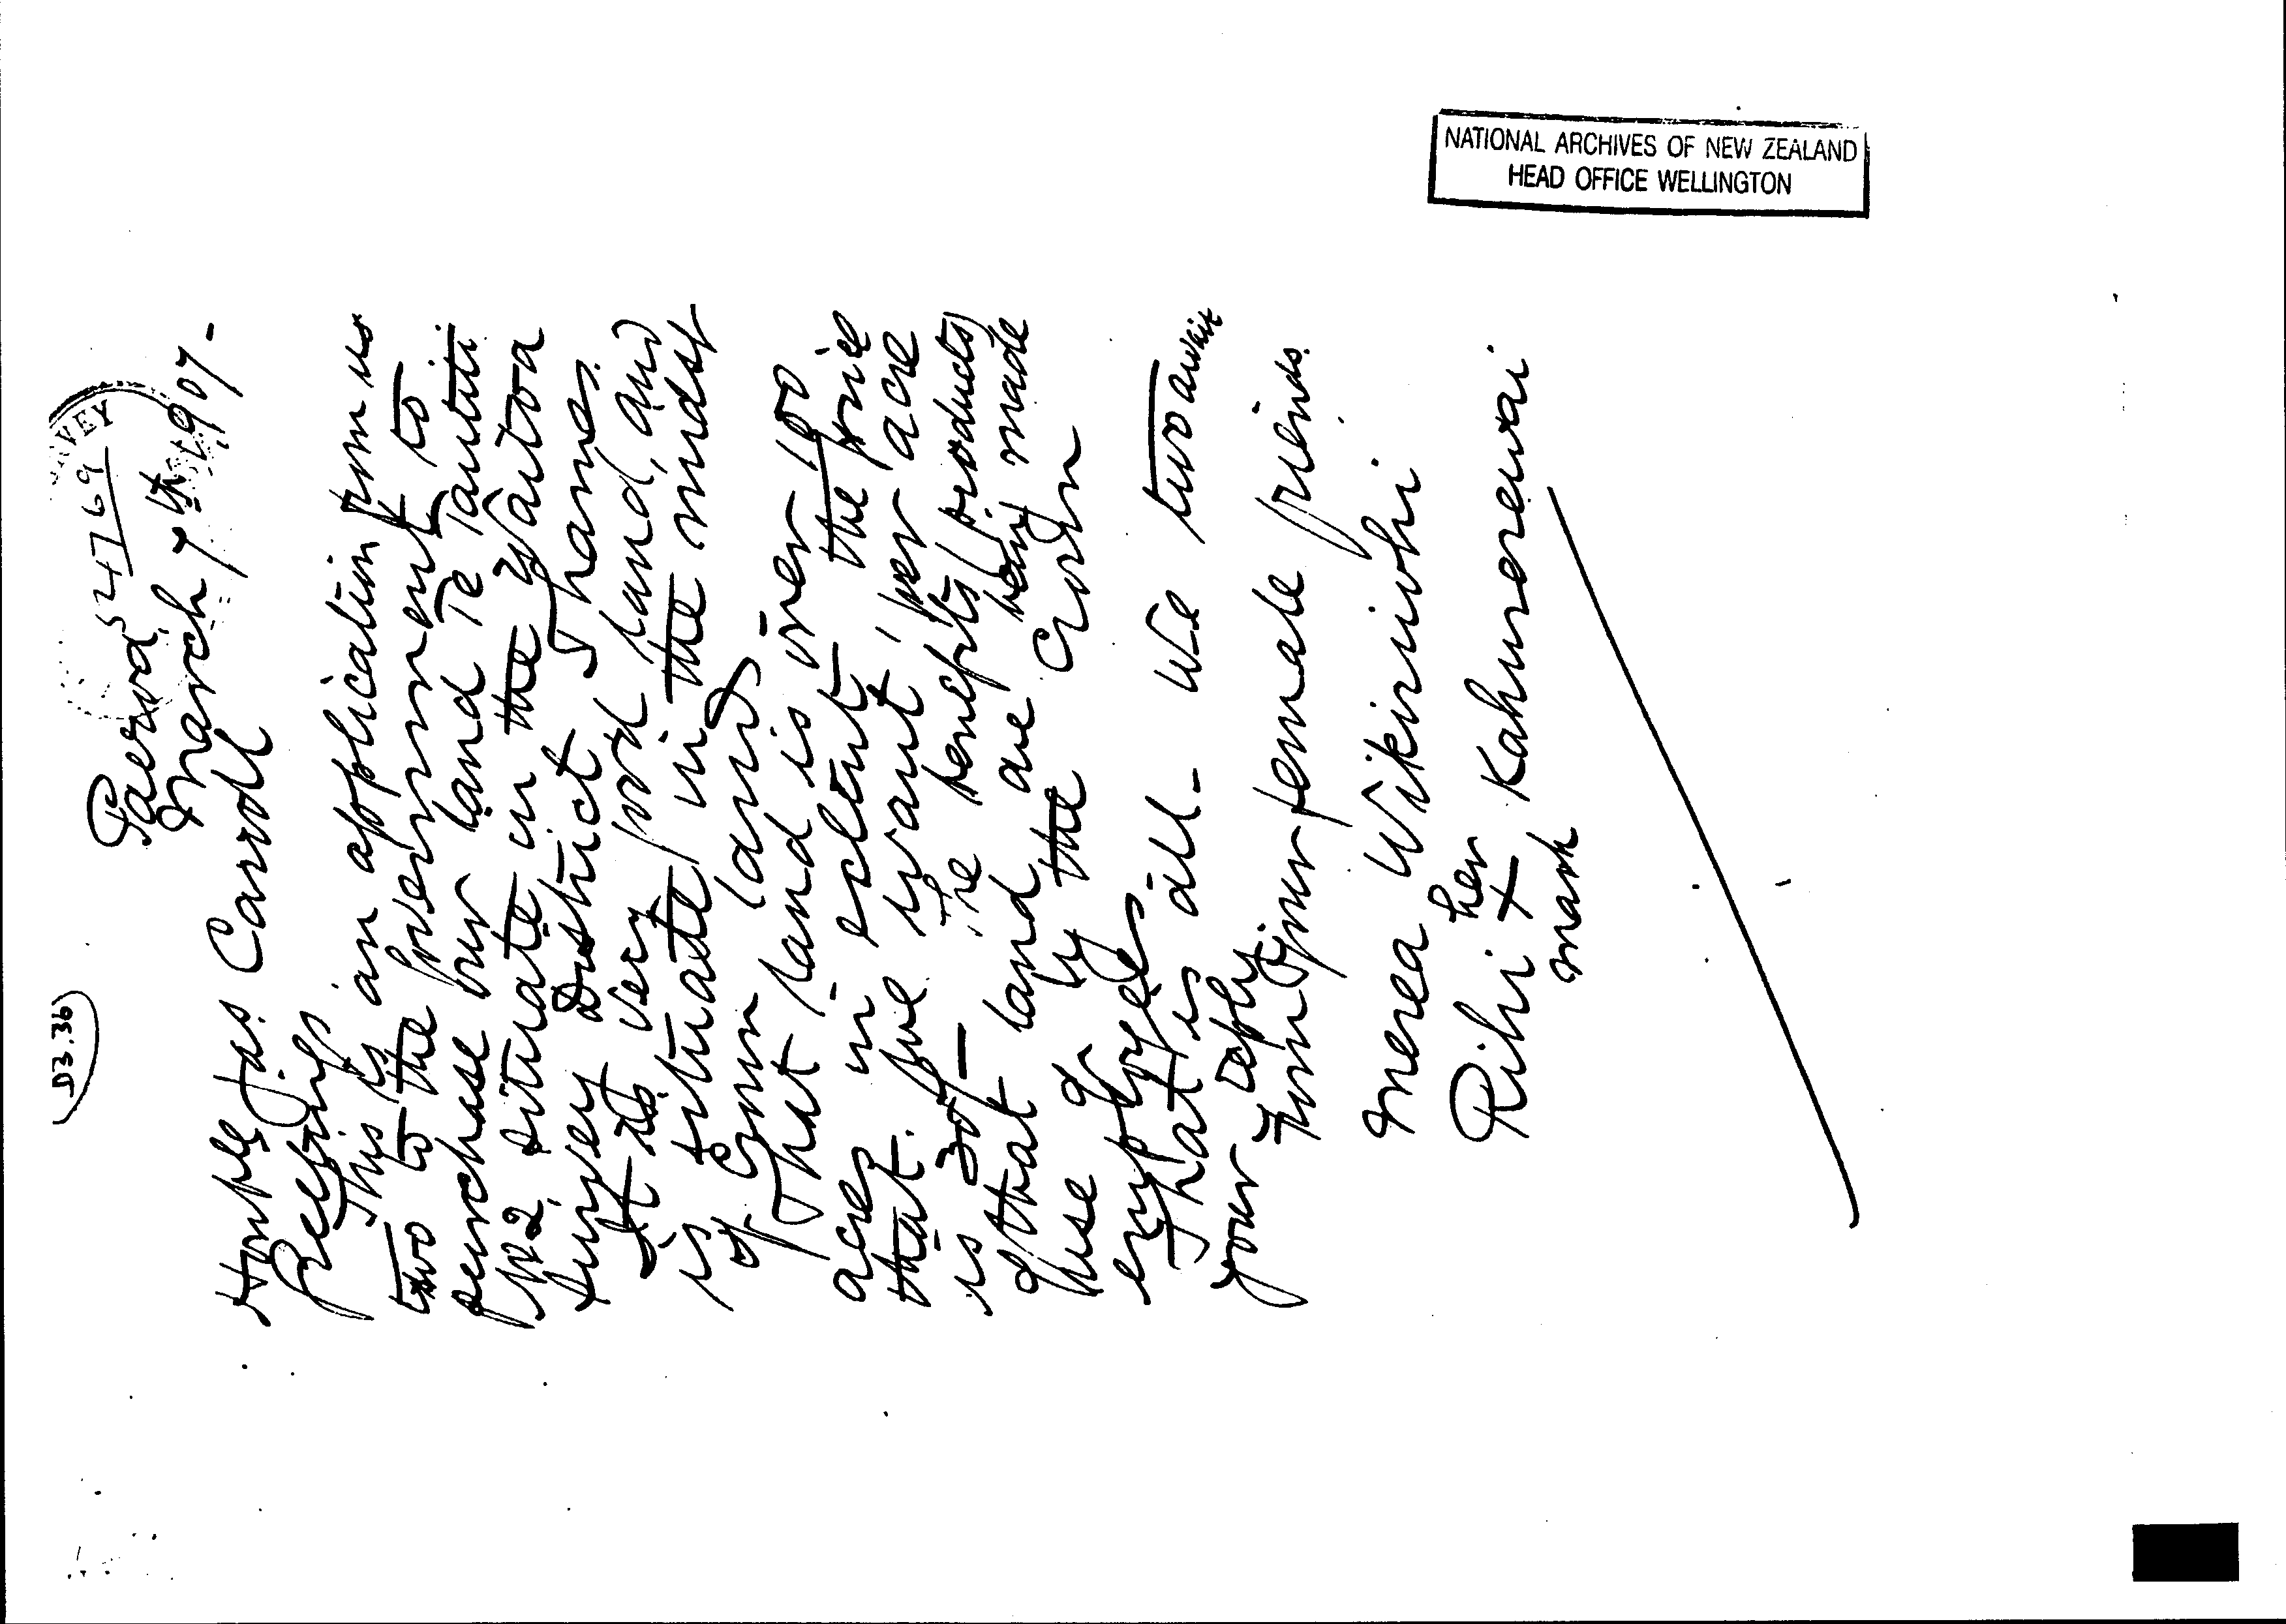 D3.36
52769
Paeroa,
March 7th 1907-
Honble Jas. Carroll
Greetings
This is an application from us
two to the Government to
purchase our land Te Tautiti
No 2, situate in the Waitoa
Survey District Thames.
It is very good land, and
is situate in the midst
of Crown lands
That land is over 100
acres in extent. the price
that we want, per acre
is 30/- The benefits (products)
of that land are being made
use of by the Crown
employees
That is all - We two await
your reply.
From your female friends.
Merea Wikiriwhi
her
Rihi x Kahurerewai
mark
NATIONAL ARCHIVES OF NEW ZEALAND
HEAD OFFICE WELLINGTON